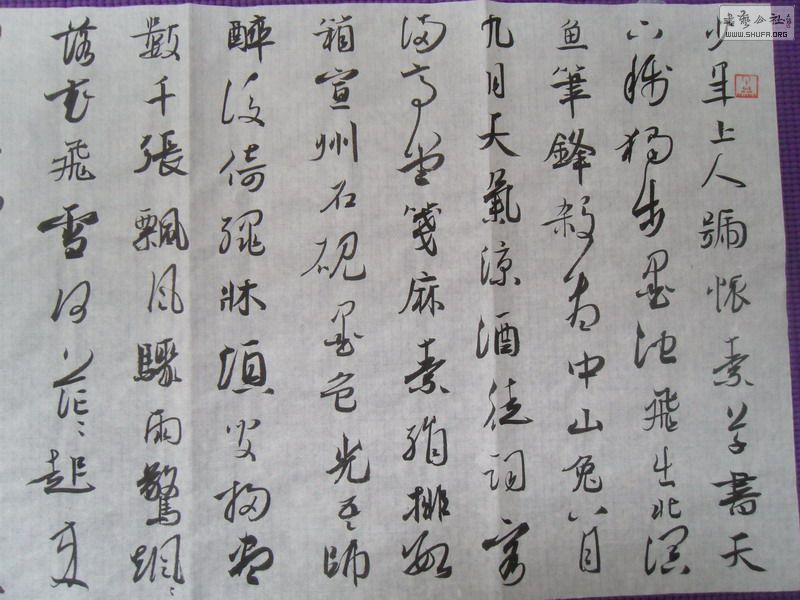 少年上人號懷素草書天
下稱獨步墨池飛出北溟
魚筆鋒殺盡中山兔八月
九月天氣涼酒徒詞客
滿高堂箋麻素絹排數
箱宣州石硯墨色光吾師
醉後倚繩牀須臾掃盡
數千張飄風驟雨驚颯々
落花飛雪何茫々起來
書藝公社
WWW.SHUFA.ORG